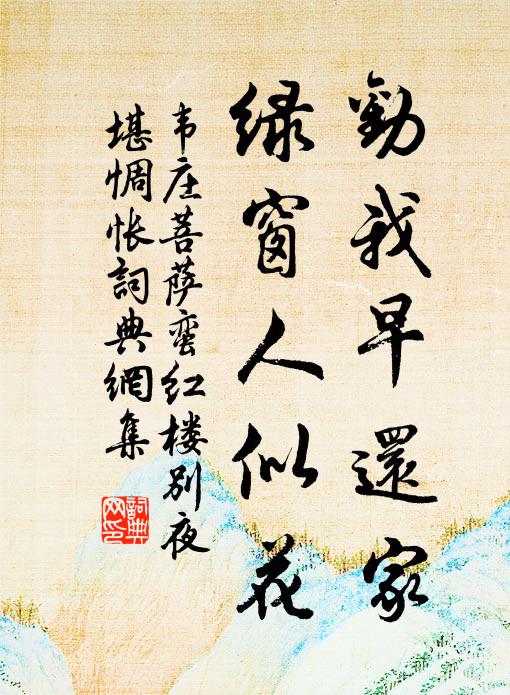 勸我早還家
綠窗人似花
韦庄菩萨蛮红楼别夜
堪惆怅詞典網集
詞典網印